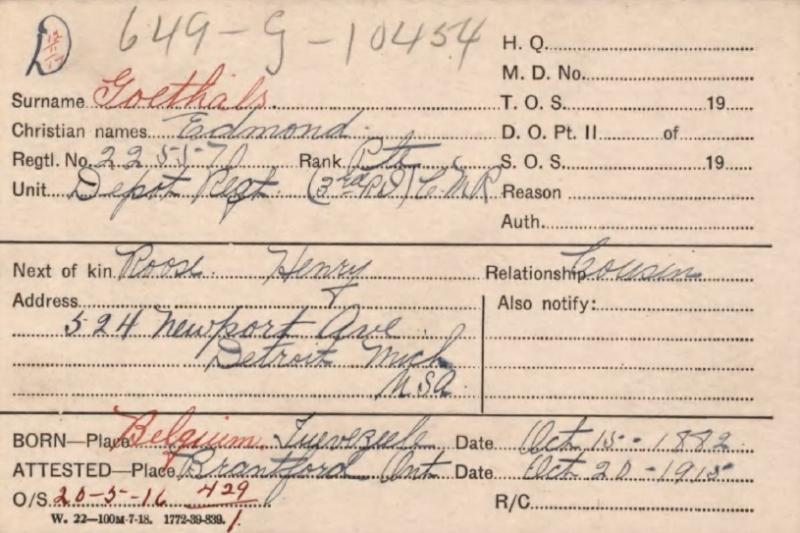 D
649-G-10454
H. Q.
M. D. No.
Surname Goethals.
T. O. S. 19
Christian names Edmond.
D. O. Pt. II of
Regtl. No. 225570 Rank Pte
S. O. S. 19
Unit Depot Regt. (3rd P.D) C.M.R
Reason
Auth.
Next of kin Roose. Henry
Relationship Cousin
Address
Also notify:
524 Newport Ave.
Detroit Mich
USA.
BORN—Place Belgium, Date Oct 15-1882
ATTESTED—Place Brantford Ont Date Oct 20-1915
O/S. 20-5-16 429
1
R/C
W. 22—100M-7-18. 1772-39-839.